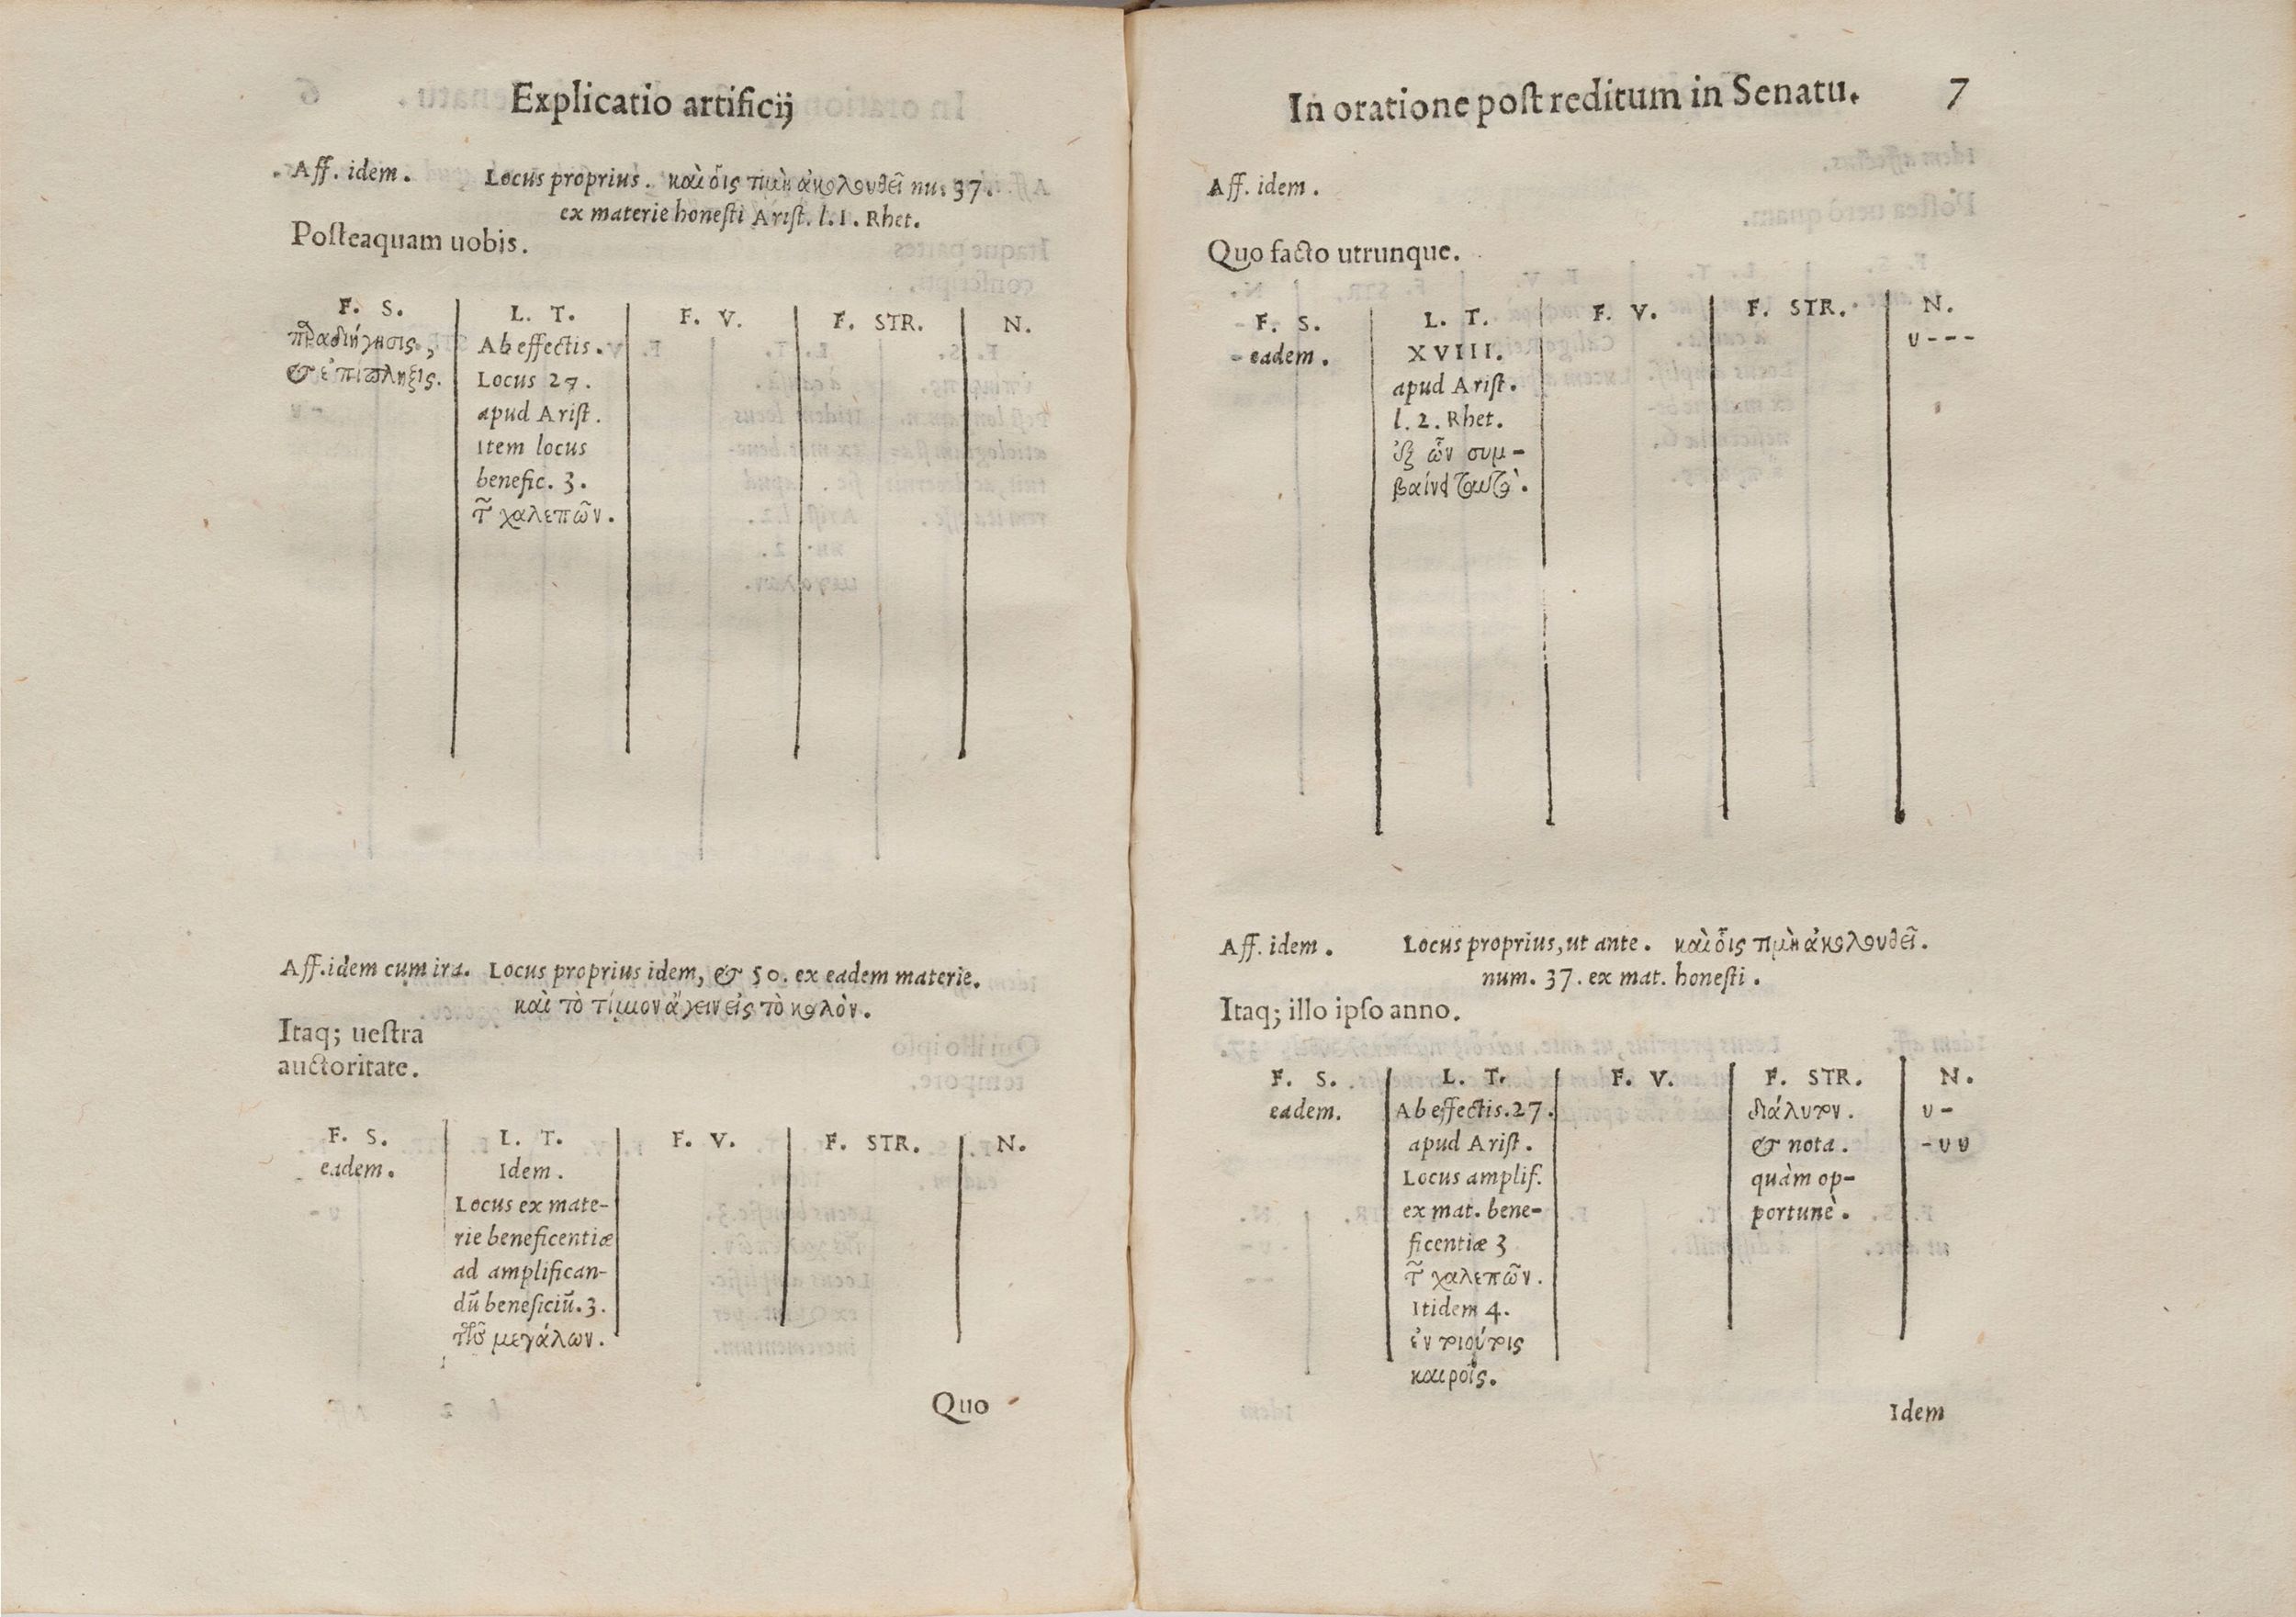 Explicatio artificij
Aff. idem. Locus proprius. καὶ οἷς τιμὴ ἀκολουθεῖ nu. 37.
ex materie honesti Arist. l. 1. Rhet.
Posteaquam uobis.
F. S. L. T. F. V. F. STR. N.
παραδιήγησις, Ab effectis.
& ἐπίπληξις. Locus 27.
apud Arist.
Item locus
benefic. 3.
τῶν χαλεπῶν.
Aff. idem cum ira. Locus proprius idem, & 50. ex eadem materie.
καὶ τὸ τίμιον ἄγειν εἰς τὸ καλὸν.
Itaq; uestra
auctoritate.
F. S. L. T. F. V. F. STR. N.
eadem. Idem.
Locus ex mate-
rie beneficentiæ
ad amplifican-
dũ beneficiũ. 3.
μεγάλων.
Quo
In oratione post reditum in Senatu. 7
Aff. idem.
Quo facto utrunque.
F. S. L. T. F. V. F. STR. N.
eadem. XVIII. υ - - -
apud Arist.
l. 2. Rhet.
ἐξ ὧν συμ-
βαίνει
Aff. idem. Locus proprius, ut ante. καὶ οἷς τιμὴ ἀκολουθεῖ.
num. 37. ex mat. honesti.
Itaq; illo ipso anno.
F. S. L. T. F. V. F. STR. N.
eadem. Ab effectis. 27. διάλυτον. υ -
apud Arist. & nota. - υ υ
Locus amplif. quàm op-
ex mat. bene- portunè.
ficentiæ 3
τῶν χαλεπῶν.
Itidem 4.
ἐν τοιούτοις
καιροῖς.
Idem